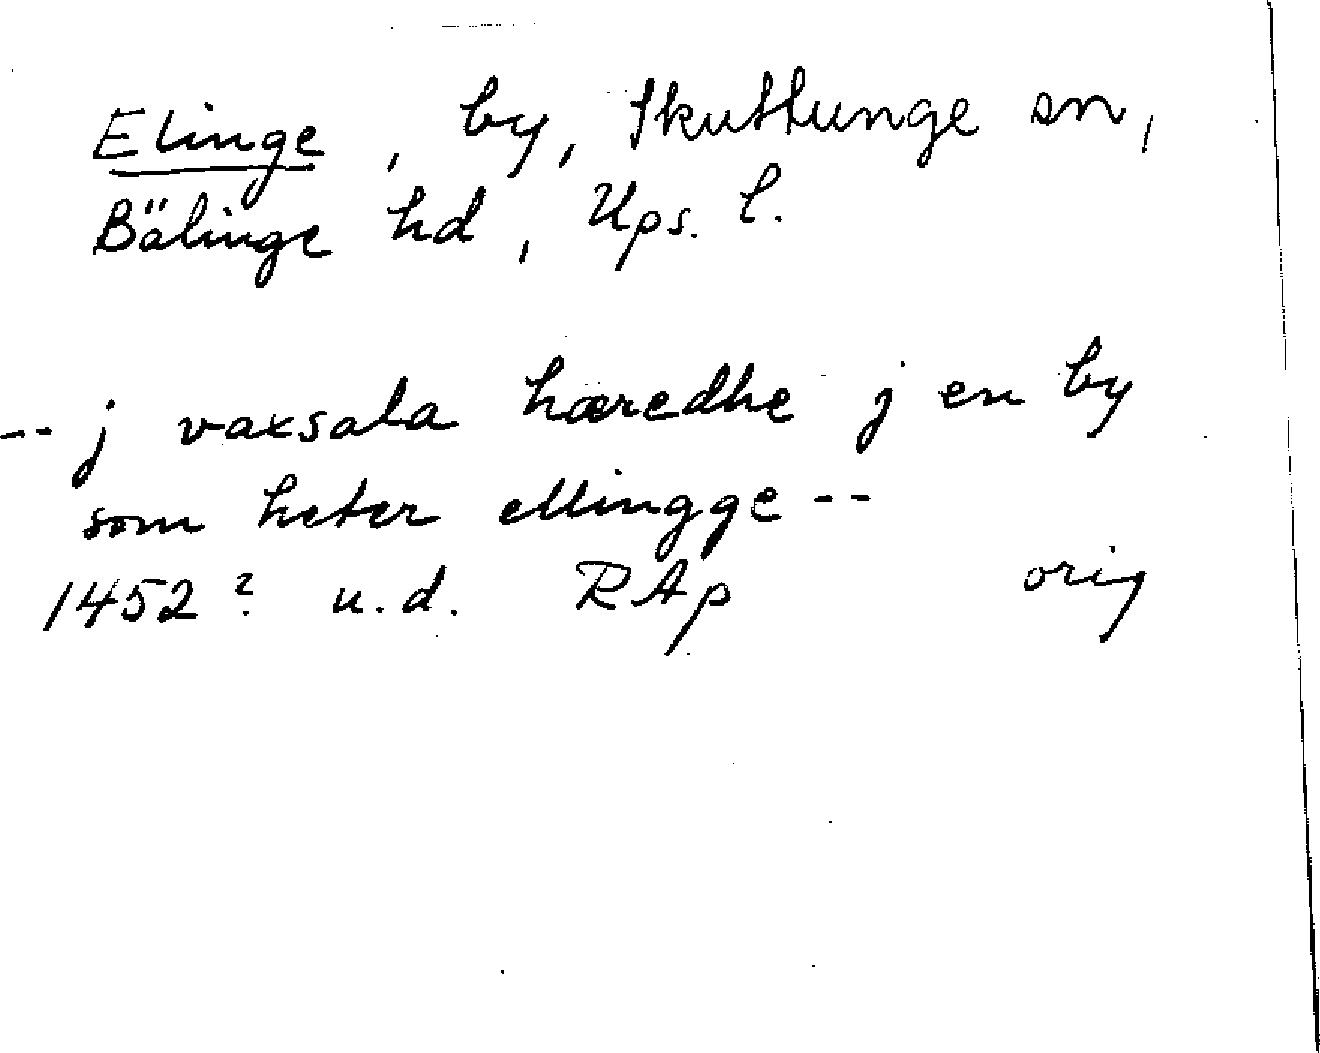 Elinge, by, Skuttunge sn,
Bälinge hd, Ups. l.
-- j vaxsala hæredhe j en by
som heter ellingge --
1452? u.d. RAp orig